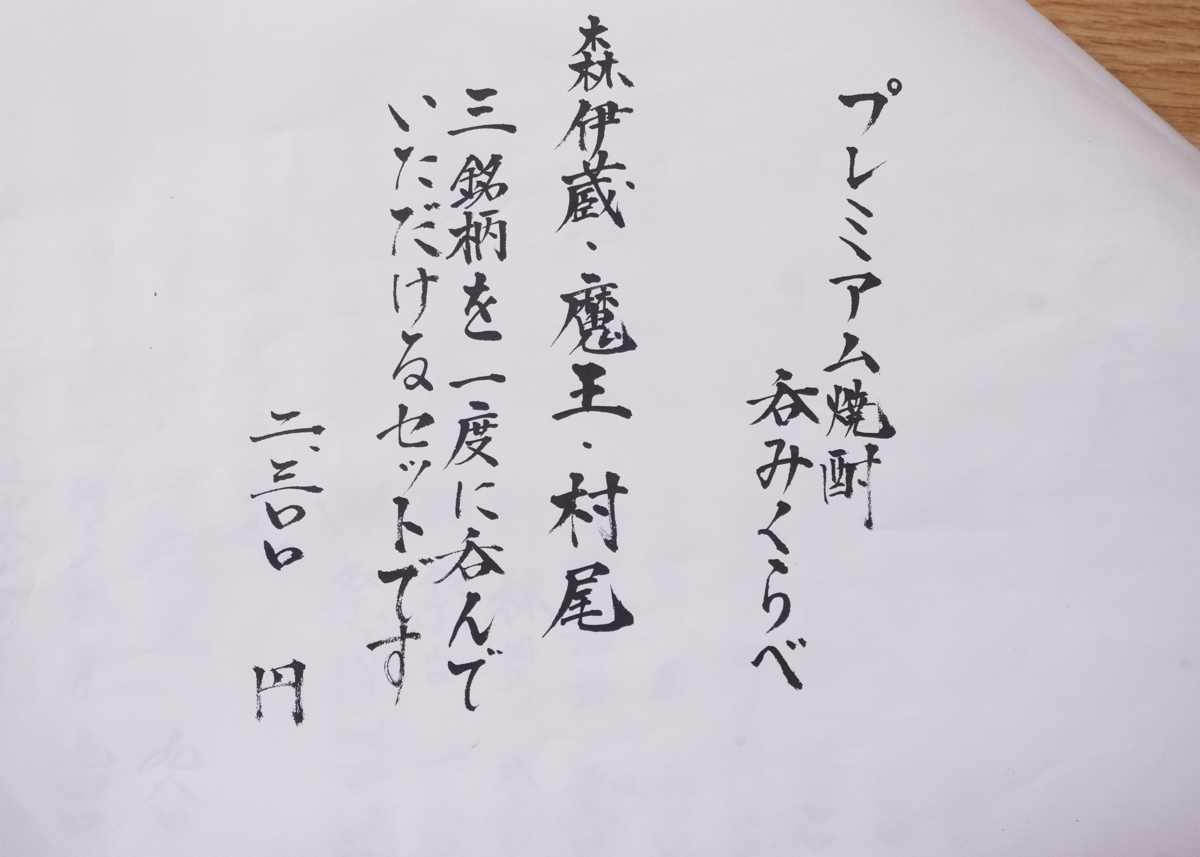 プレミアム焼酎
呑みくらべ
森伊蔵・魔王・村尾
三銘柄を一度に呑んで
いただけるセットです
二、三〇〇 円